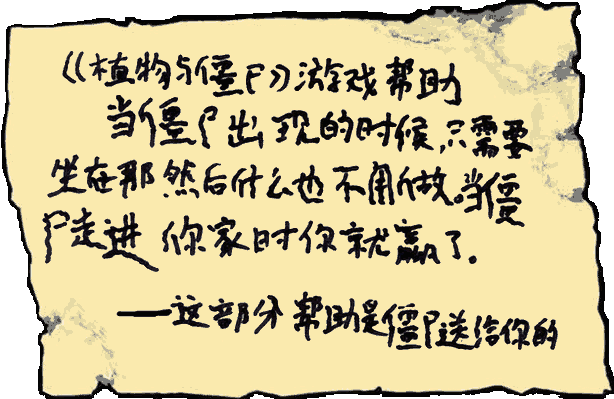 《植物与僵尸》游戏帮助
当僵尸出现的时候,只需要
坐在那然后什么也不用做。当僵
尸走进你家时你就赢了.
——这部分帮助是僵尸送给你的